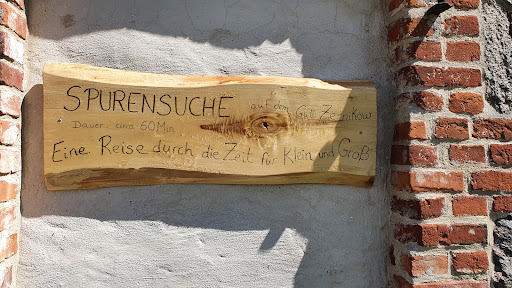 SPURENSUCHE auf dem Gut Zernikow
Dauer: circa 60 Min.
Eine Reise durch die Zeit für Klein und Groß